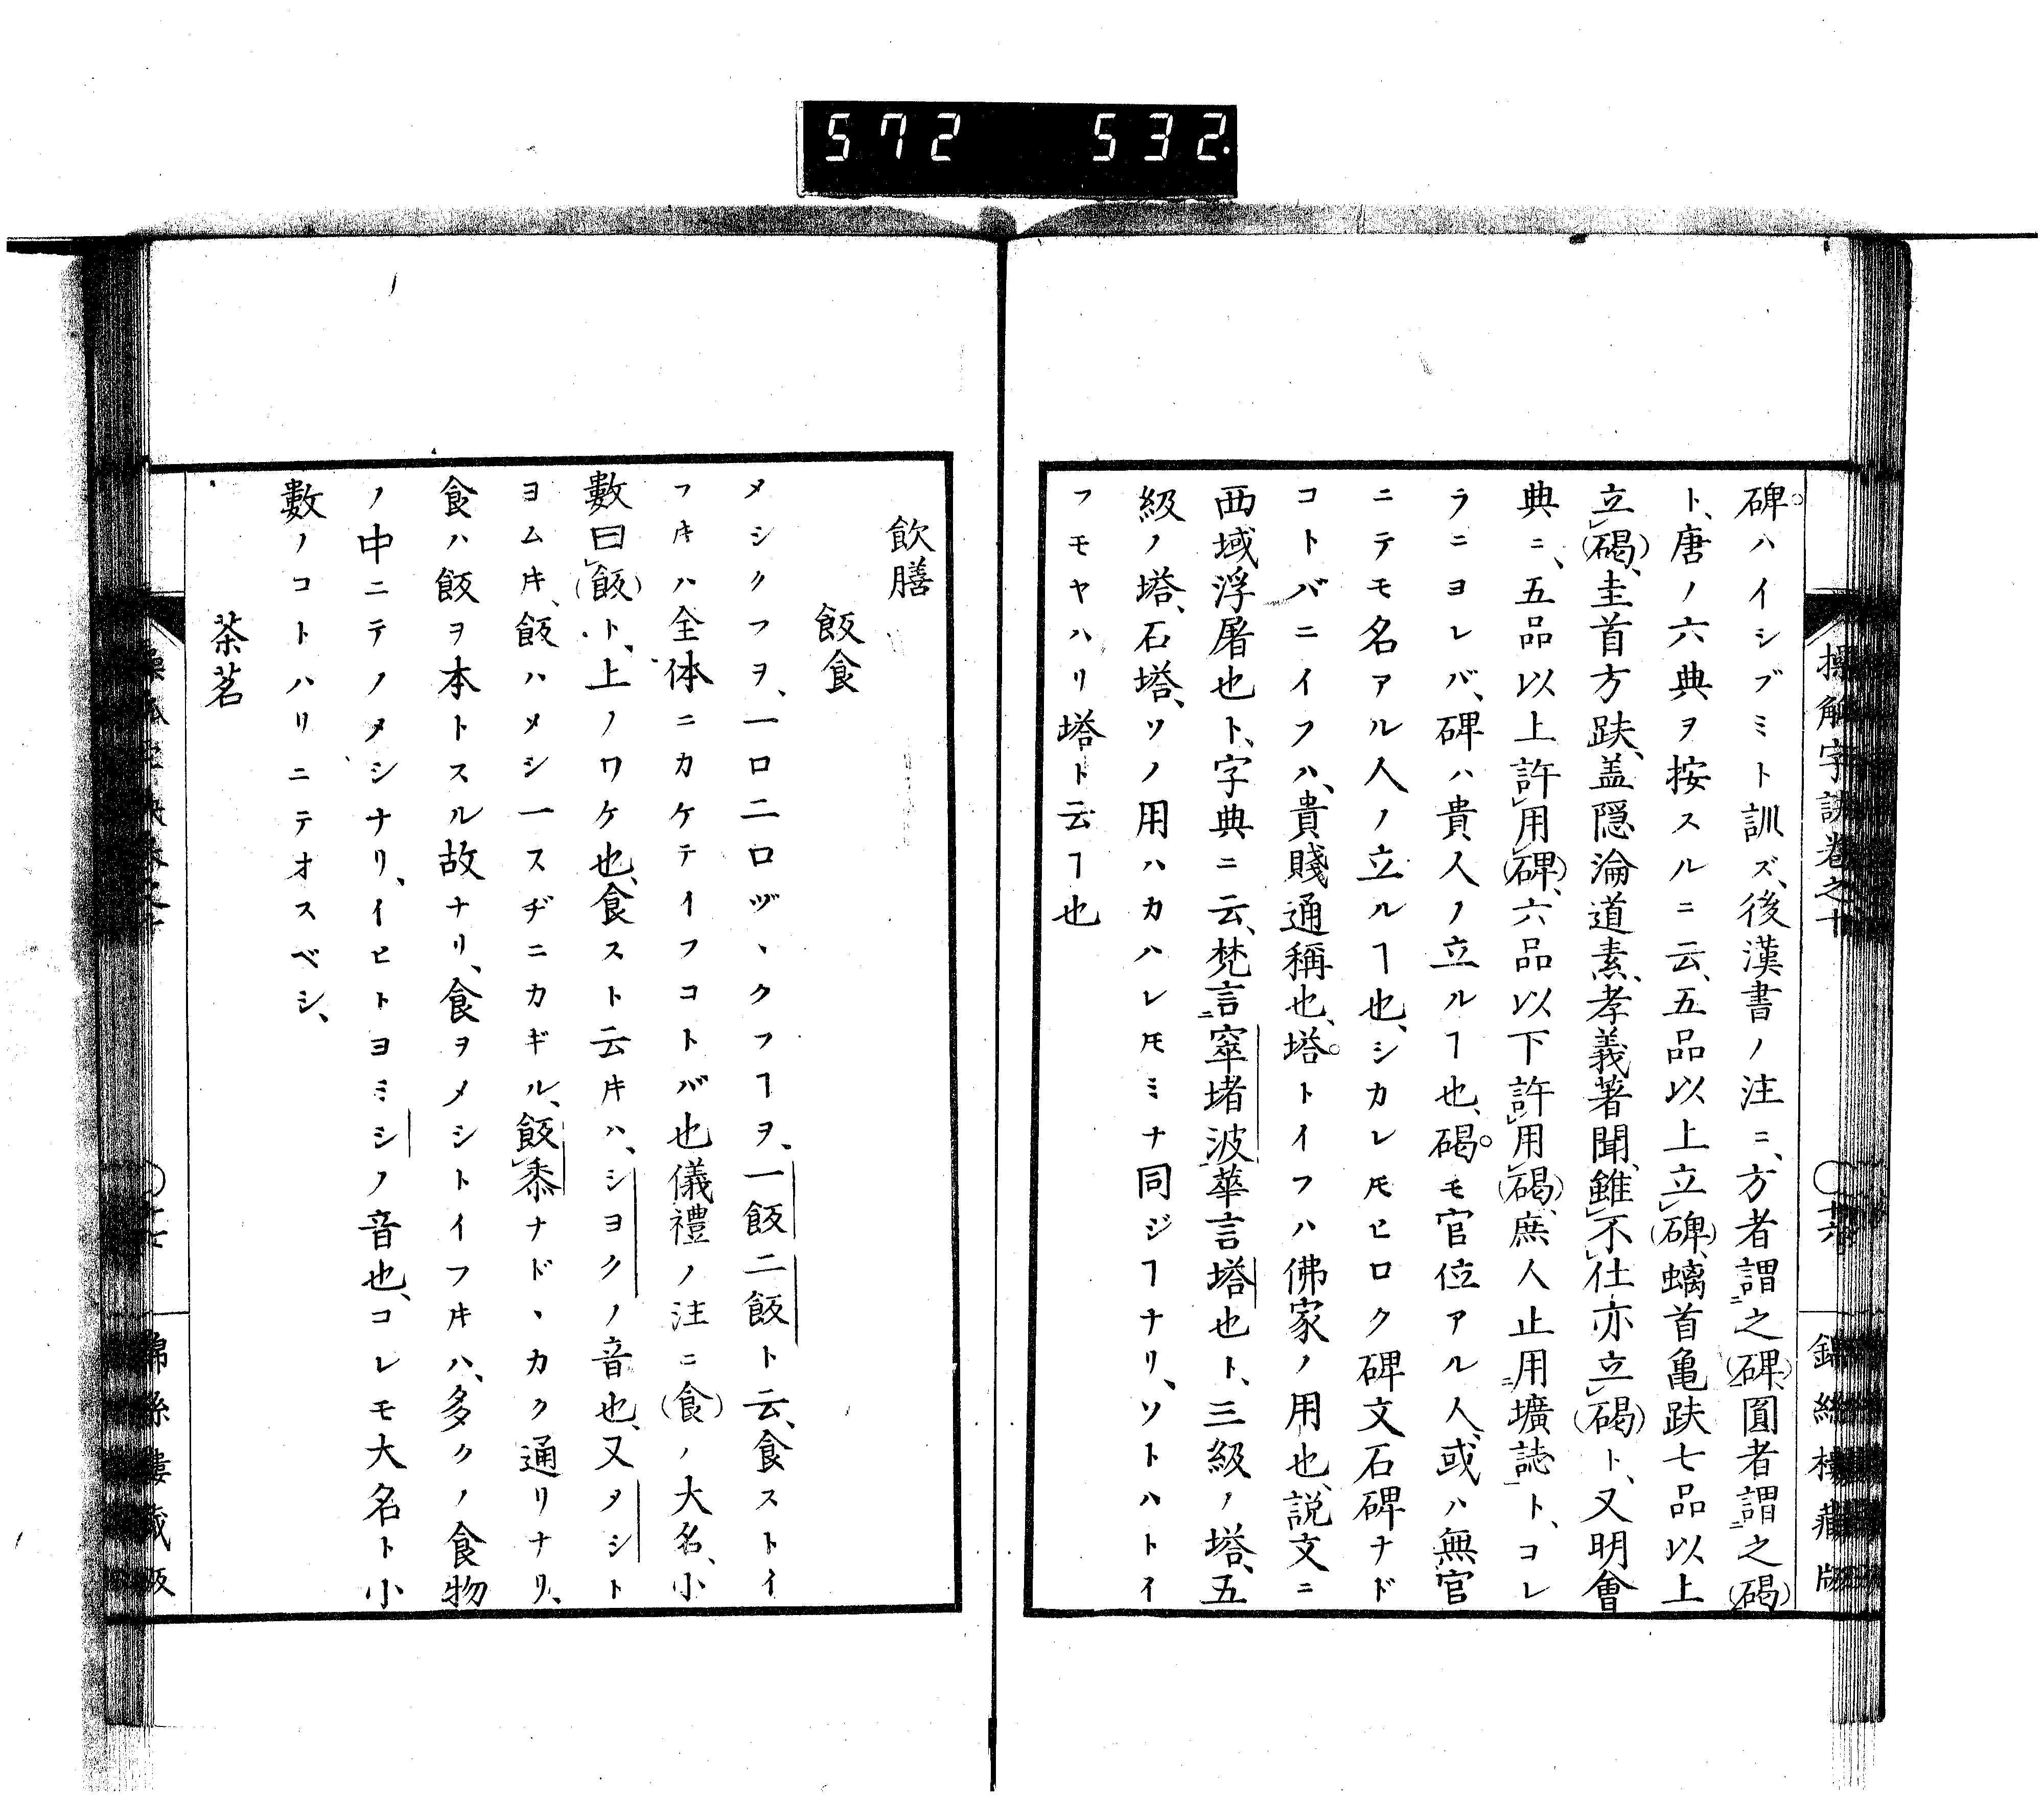 572 532.
碑ハイシブミト訓ズ、後漢書ノ注ニ、方者謂ニ之(碑)、圓者謂ニ之(碣)
ト、唐ノ六典ヲ按スルニ云、五品以上立レ(碑)、螭首亀趺七品以上
立レ(碣)、圭首方趺、盖隠淪道素、孝義著聞、雖レ不レ仕亦立レ(碣)ト、又明會
典ニ、五品以上許レ用レ(碑)、六品以下許レ用レ(碣)、庶人止用ニ壙誌一ト、コレ
ラニヨレバ、碑ハ貴人ノ立ルヿ也、碣モ官位アル人、或ハ無官
ニテモ名アル人ノ立ルヿ也、シカレ𪜈ヒロク碑文石碑ナド
コトバニイフハ、貴賤通稱也、塔トイフハ佛家ノ用也、説文ニ
西域浮屠也ト、字典ニ云、梵言ニ窣堵波華言塔也ト、三級ノ塔、五
級ノ塔、石塔、ソノ用ハカハレ𪜈ミナ同ジヿナリ、ソトハトイ
フモヤハリ塔ト云ヿ也
飲膳
飯食
メシクフヲ、一口二口ヅヽクフヿヲ、一飯二飯ト云、食ストイ
フ𪜀ハ全体ニカケテイフコトバ也儀禮ノ注ニ(食)ノ大名、小
數曰レ(飯)ト、上ノワケ也、食スト云𪜀ハ、シヨクノ音也、又タシト
ヨム𪜀、飯ハメシ一スヂニカギル、飯レ黍ナドヽカク通リナリ、
食ハ飯ヲ本トスル故ナリ、食ヲメシトイフ𪜀ハ、多クノ食物
ノ中ニテノメシナリ、イヒトヨミシノ音也、コレモ大名ト小
數ノコトハリニテオスベシ、
茶茗